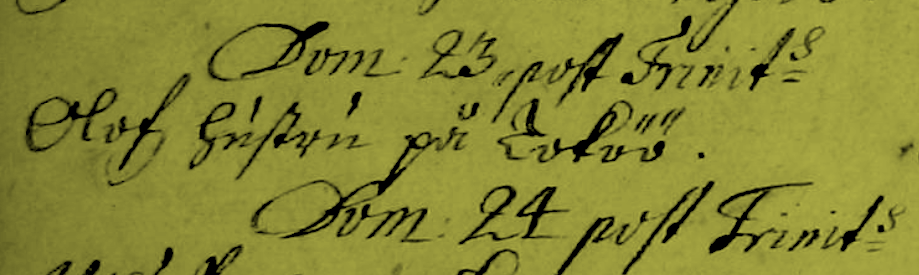 Dom. 23 post Trinit:s
Olof hustru på Loköö.
Dom. 24 post Trinit:s